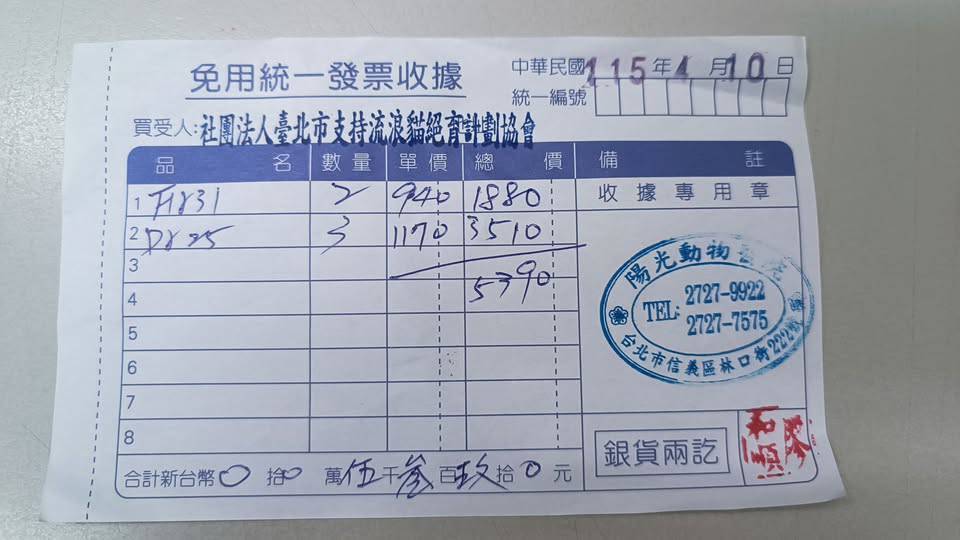 免用統一發票收據
中華民國115年4月10日
統一編號
買受人:社團法人臺北市支持流浪貓絕育計劃協會
品名 數量 單價 總價 備註
1 2 940 1880 收據專用章
2 3 1170 3510
3
4 5390
5
6
7
8
陽光動物醫院
TEL: 2727-9922
2727-7575
台北市信義區林口街222號
合計新台幣0拾0萬伍千叁百玖拾0元
銀貨兩訖